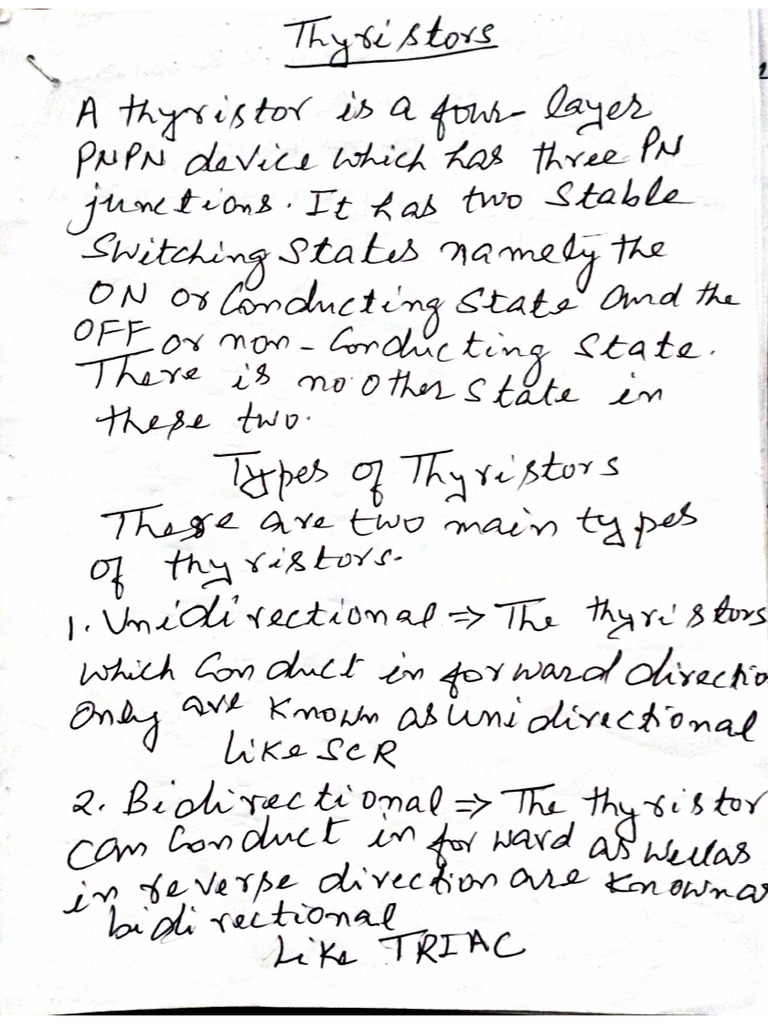 Thyristors
A thyristor is a four-layer
PNPN device which has three PN
junctions. It has two Stable
Switching States namely the
ON or Conducting State and the
OFF or non-Conducting State.
There is no other State in
these two.
Types of Thyristors
There are two main types
of thyristors.
1. Unidirectional ⇒ The thyristors
which Conduct in forward directio
only are known as unidirectional
Like SCR
2. Bidirectional ⇒ The thyristor
can Conduct in forward as well as
in reverse direction are known as
bidirectional
Like TRIAC